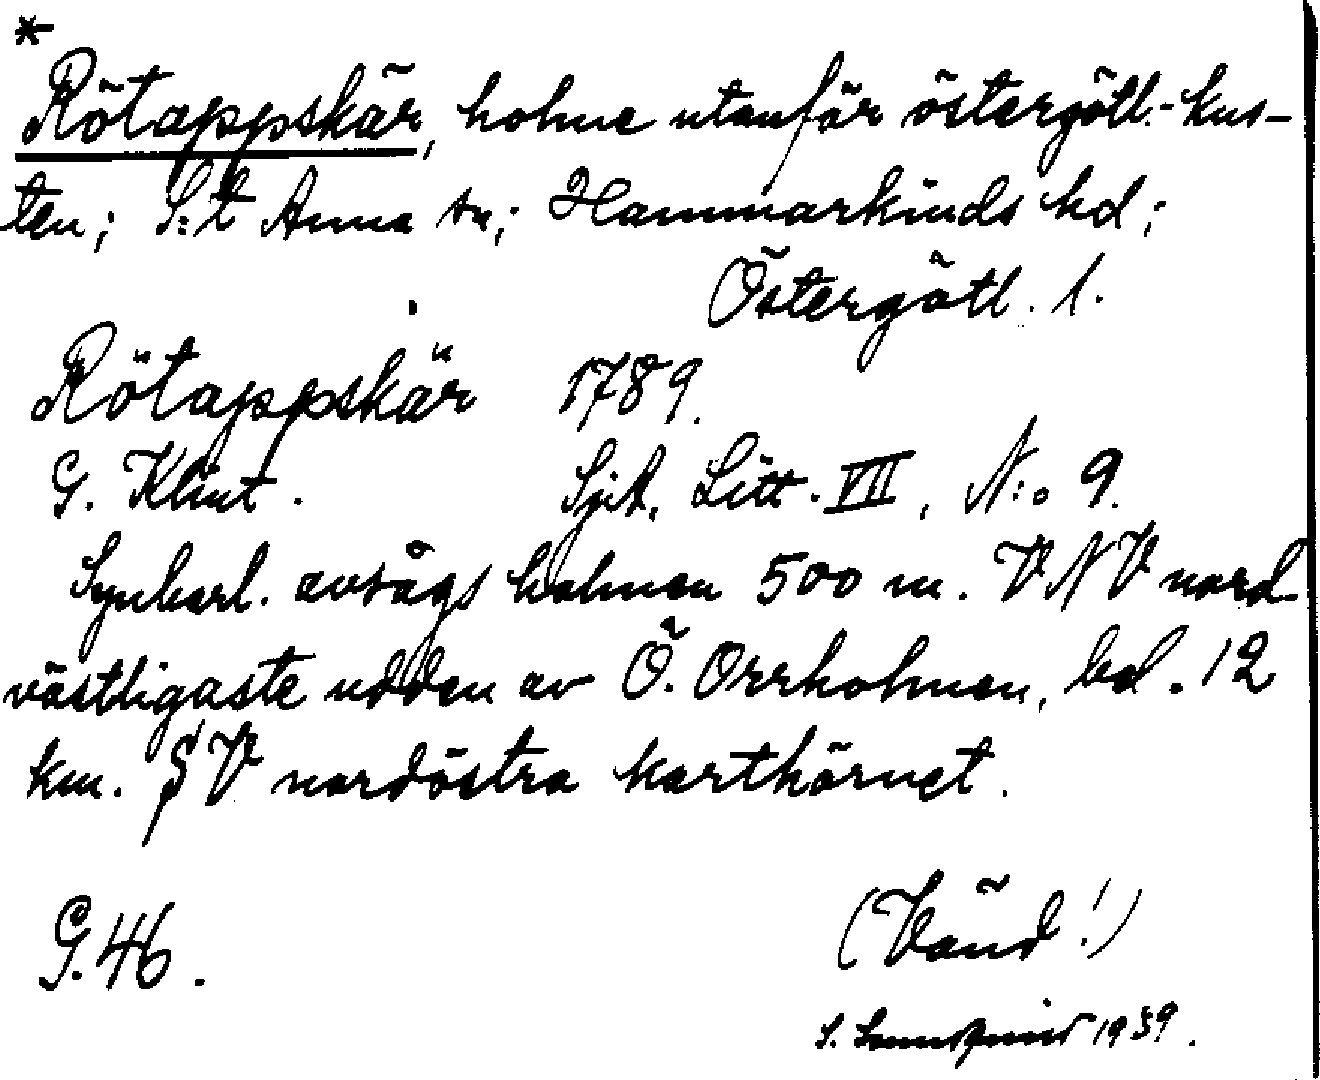 *
Rötappskär, holme utanför östergötl.-kus-
ten; S:t Anna sn; Hammarkinds hd;
Östergötl. l.
Rötappskär 1789.
G. Klint. Sjk. Litt. VII, N:o 9.
Synbarl. avsågs holmen 500 m. VNV nord
västligaste udden av Ö. Orrholmen, bel. 12
km. SV nordöstra karthörnet.
G. 46.
(Vänd!)
S. 1939.